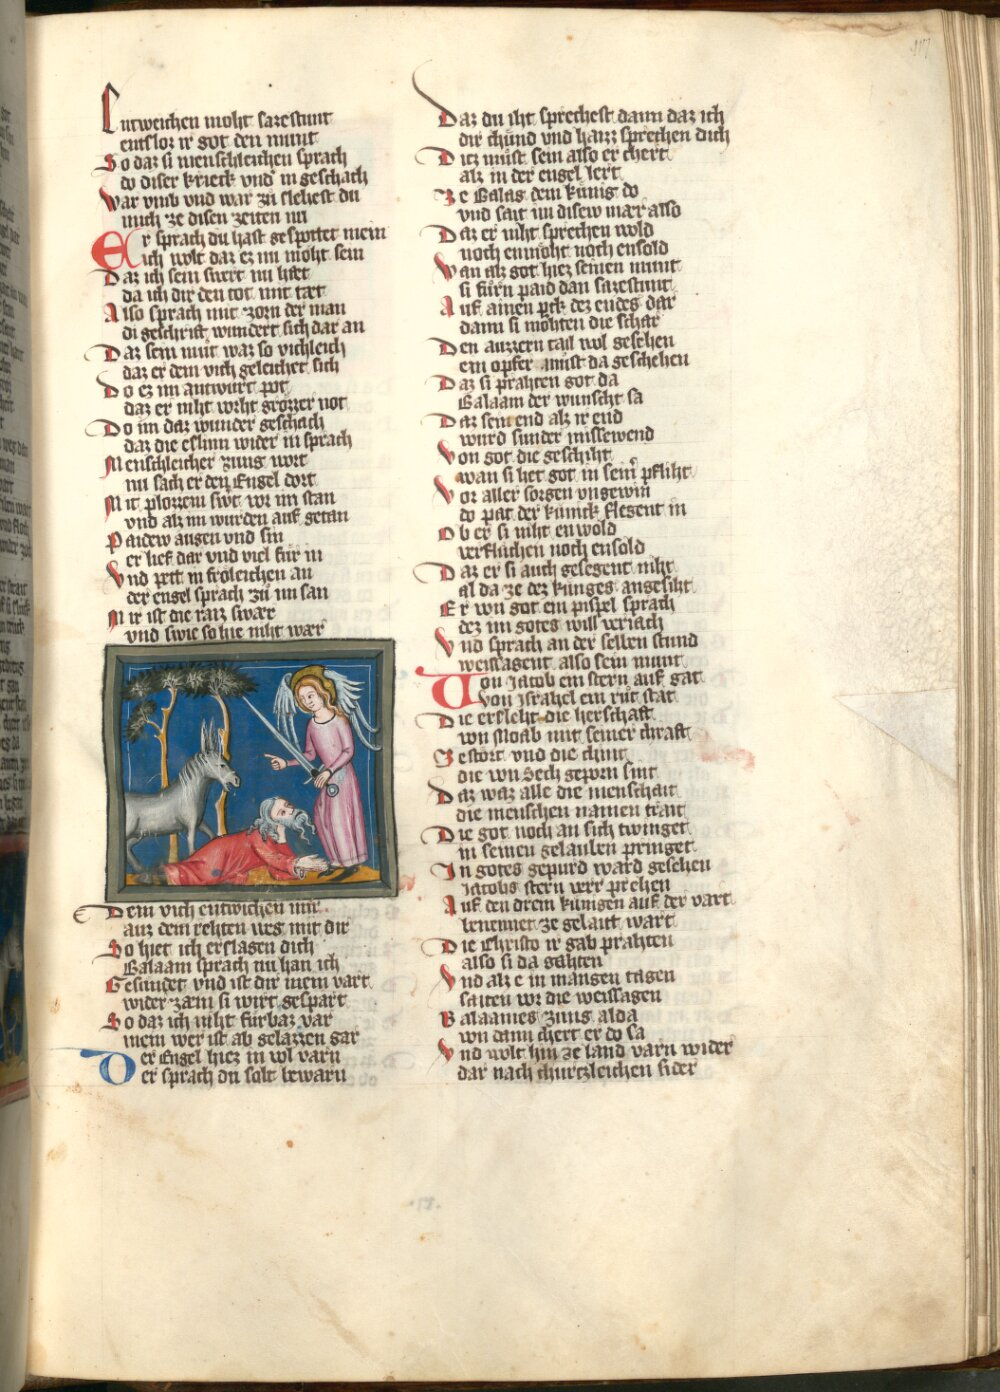 Entweichen moht sazestunt
entsloz ir got den munt
So daz si menschleichen sprach
do diser krieck vnd in geschach
War vmb vnd war zu slehest du
mich ze disen zeiten nu
Er sprach du hast gespottet mein
ich wolt daz ez nu moht sein
Daz ich sein swert nu hiet
da ich dir den tot mit tæt
Also sprach mit zorn der man
di geschrift wundert sich dar an
Daz sein mut waz so vichleich
daz er dem vich geleichet sich
Do ez im antwurt pot
daz er niht vorht grozzer not
Do im daz wunder geschach
daz die eslinn wider in sprach
Menschleicher zung wort
nu sach er den Engel dort
Mit plozzem swt vor im stan
vnd alz im wurden auf getan
Paidew augen vnd sin
er lief dar vnd viel für in
Vnd pett in froleichen an
der engel sprach zu im san
Mir ist die raiz swær
vnd swie so hie niht wær
Dem vich entwichen mir
auz dem rehten weg mit dir
So hiet ich erslagen dich
Balaam sprach nu han ich
Gesundet vnd ist dir mein vart
wider zæm si wirt gespart
So daz ich niht fürbaz var
mein wer ist ab gelazzen gar
Der Engel hiez in wol varn
er sprach du solt bewarn
Daz du iht sprechest dann daz ich
dir chünd vnd haizz sprechen dich
Ditz müst sein also er chert
alz in der engel lert
Ze Balag dem künig do
vnd sait im disew mær also
Daz er niht sprechen wold
noch enmoht noch ensold
Wan alz got hiez seinen munt
si fürn paid dan sazestunt
Auf ainen perk dez endes dar
dann si mohten die schar
Den auzzern tail wol gesehen
ein opfer must da geschehen
Daz si prahten got da
Balaam der wunscht sa
Daz sein end alz ir end
wurd sunder missewend
Von got die geschiht
wan si het got in seinr pfliht
Vor aller sorgen vngewin
do pat der künick flegent in
Ob er si niht en wold
verfluchen noch ensold
Daz er si auch gesegent niht
al da ze dez künges angesiht
Er von got ein pispel sprach
dez im gotes will veriach
Vnd sprach an der selben stund
weissagent also sein munt
Von Jacob ein stern auf gat
von Israhel ein rüt stat
Die ersleht die herschaft
von Moab mit seiner chraft
Zestort vnd die chint
die von Sech geporn sint
Daz waz alle die menschait
die menschen namen trait
Die got noch an sich twinget
in seinen gelauben pringet
In gotes gepurd ward gesehen
Jacobs stern verr prehen
Auf den drein künigen auf der vart
benennet ze gelaitt wart
Die Christo ir gab prahten
also si da gahten
Vnd alz e in mangen tagen
saiten vor die weissagen
Balaames zung alda
von dann chert er do sa
Vnd wolt hin ze land varn wider
dar nach churtzleichen sider